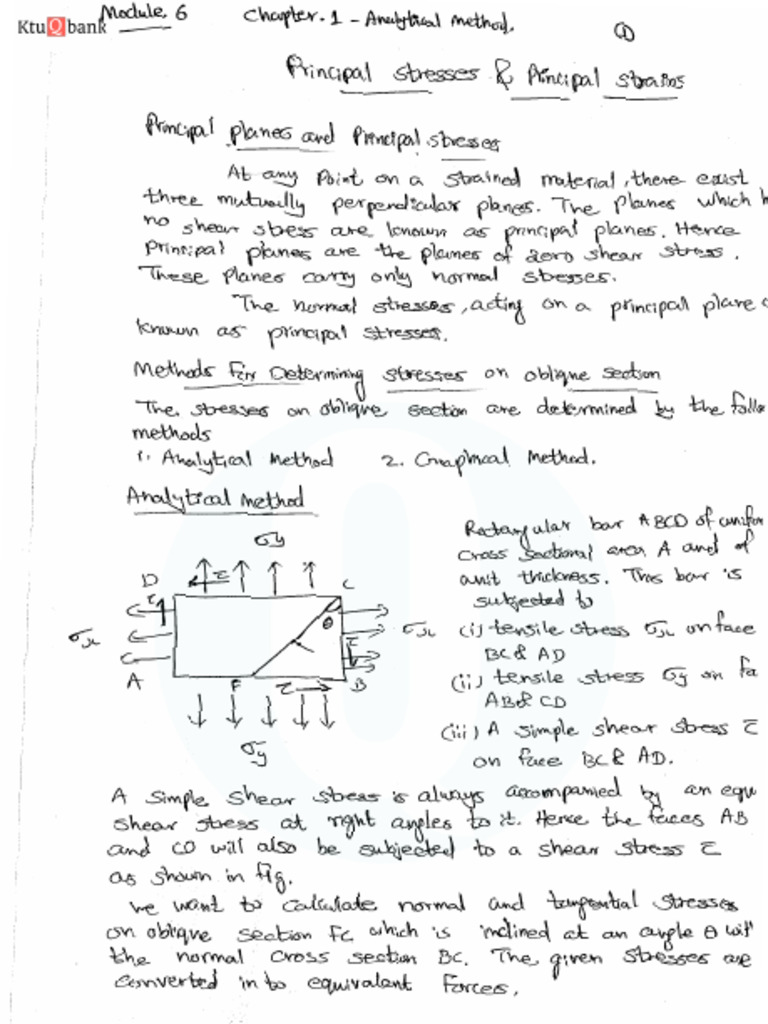 Module 6 Chapter. 1 - Analytical method.
KtuQbank
1
Principal stresses & Principal strains
Principal planes and Principal stresses
At any point on a strained material, there exist
three mutually perpendicular planes. The planes which h
no shear stress are known as principal planes. Hence
principal planes are the planes of zero shear stress.
These planes carry only normal stresses.
The normal stresses, acting on a principal plane a
known as principal stresses.
Methods For Determining stresses on oblique section
The stresses on oblique section are determined by the follo
methods
1. Analytical method 2. Graphical method.
Analytical method
Rectangular bar ABCD of unifor
cross sectional area A and of
unit thickness. This bar is
subjected to
(i) tensile stress σx on face
BC & AD
(ii) tensile stress σy on fa
AB & CD
(iii) A simple shear stress τ
on face BC & AD.
σy
D τ C
τ θ
σx σx
τ
A F τ B
σy
A simple shear stress is always accompanied by an equ
shear stress at right angles to it. Hence the faces AB
and CD will also be subjected to a shear stress τ
as shown in fig.
we want to calculate normal and tangential stresses
on oblique section FC which is inclined at an angle θ wit
the normal cross section BC. The given stresses are
converted in to equivalent forces.